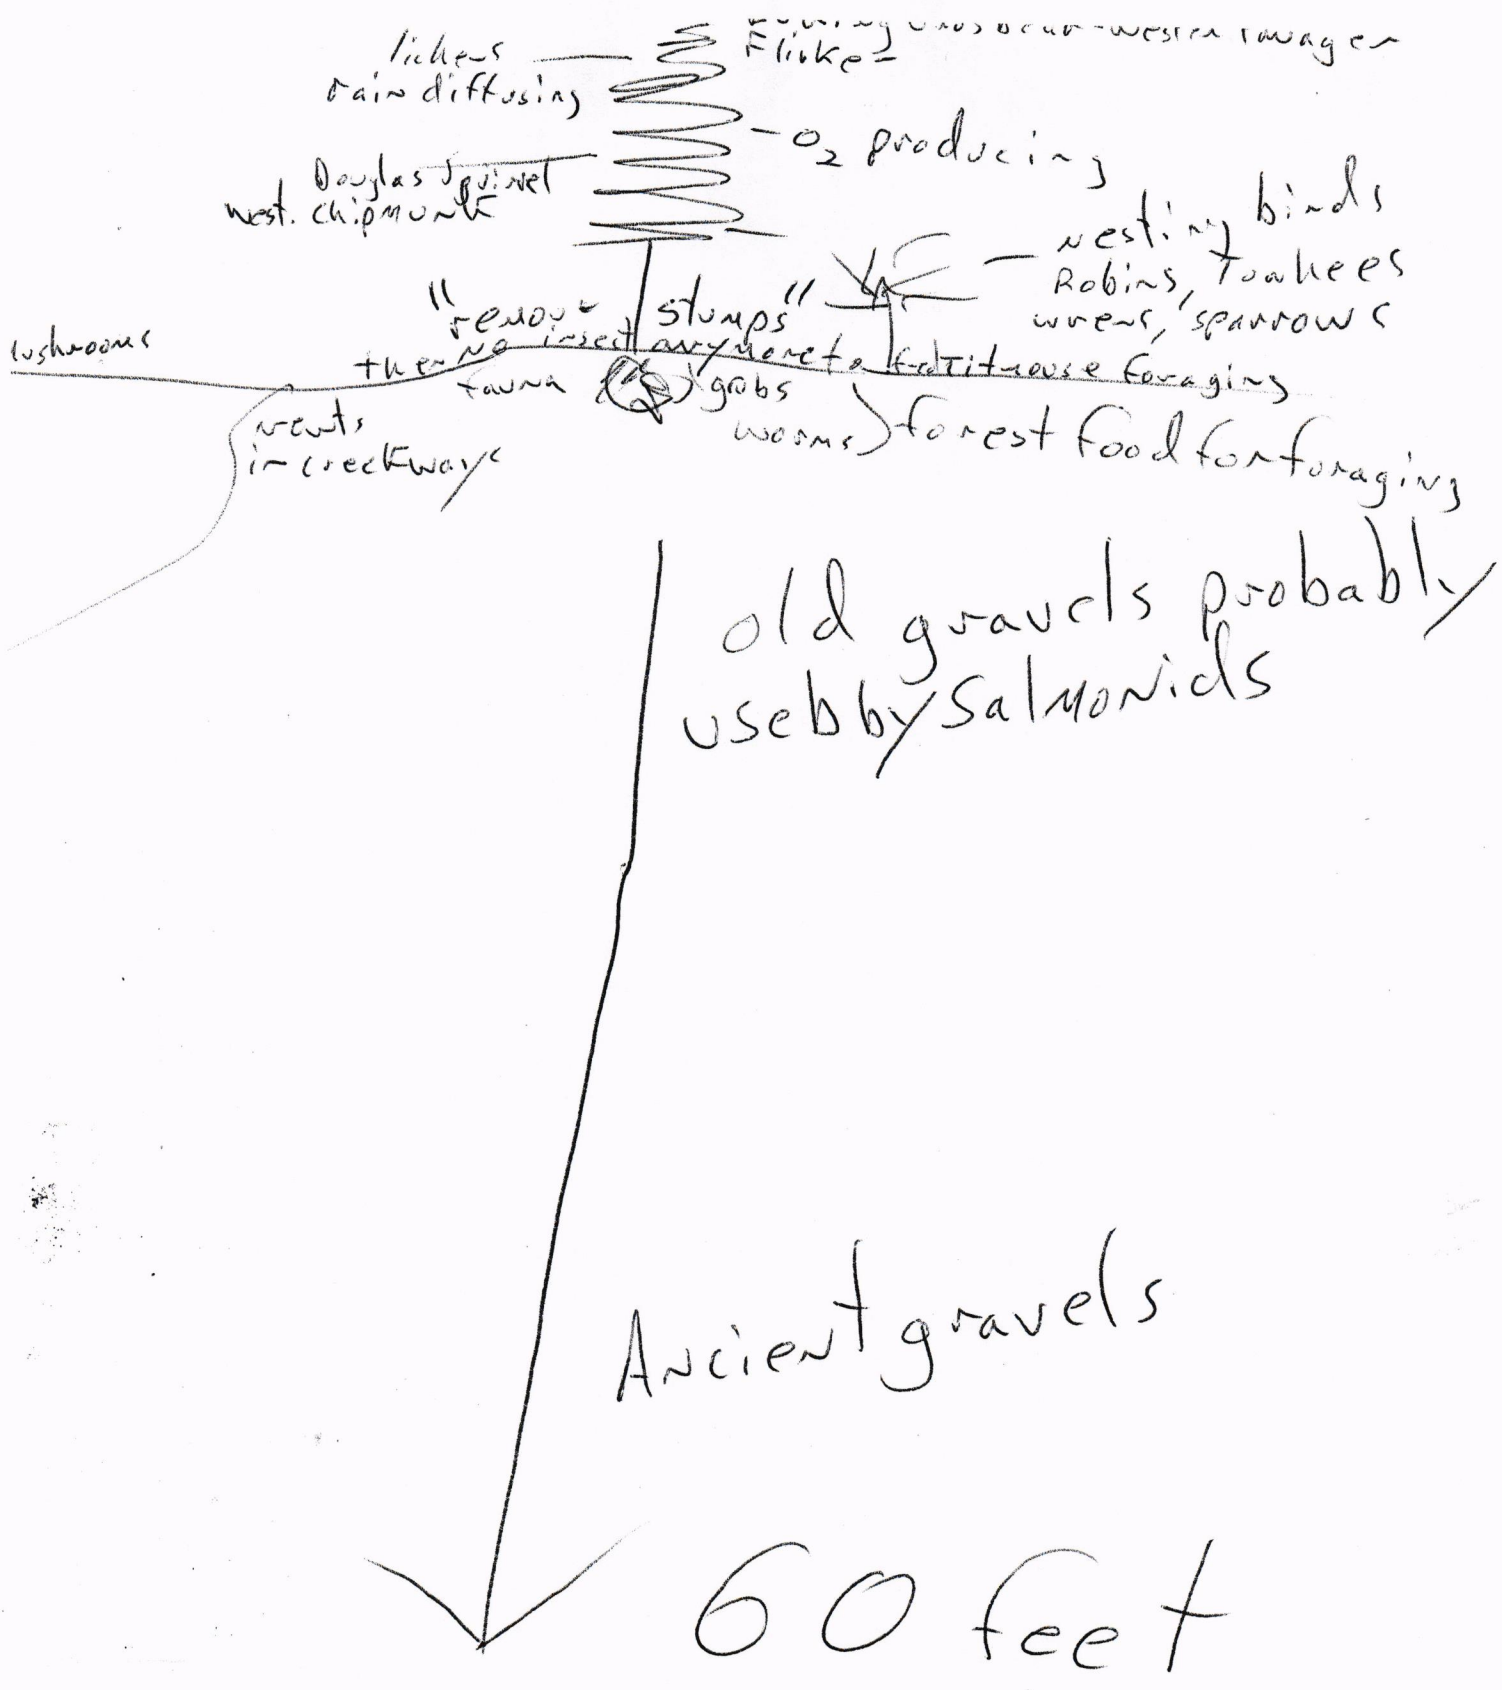 western tanager
Flicker
lichens
rain diffusing
O2 producing
Douglas Squirrel
west. chipmunk
nesting birds
Robins, Towhees
wrens, sparrows
"remove stumps"
then no insect anymore to titmouse foraging
fauna
grubs
worms
forest food for foraging
newts
in creekways
old gravels probably
used by Salmonids
Ancient gravels
60 feet